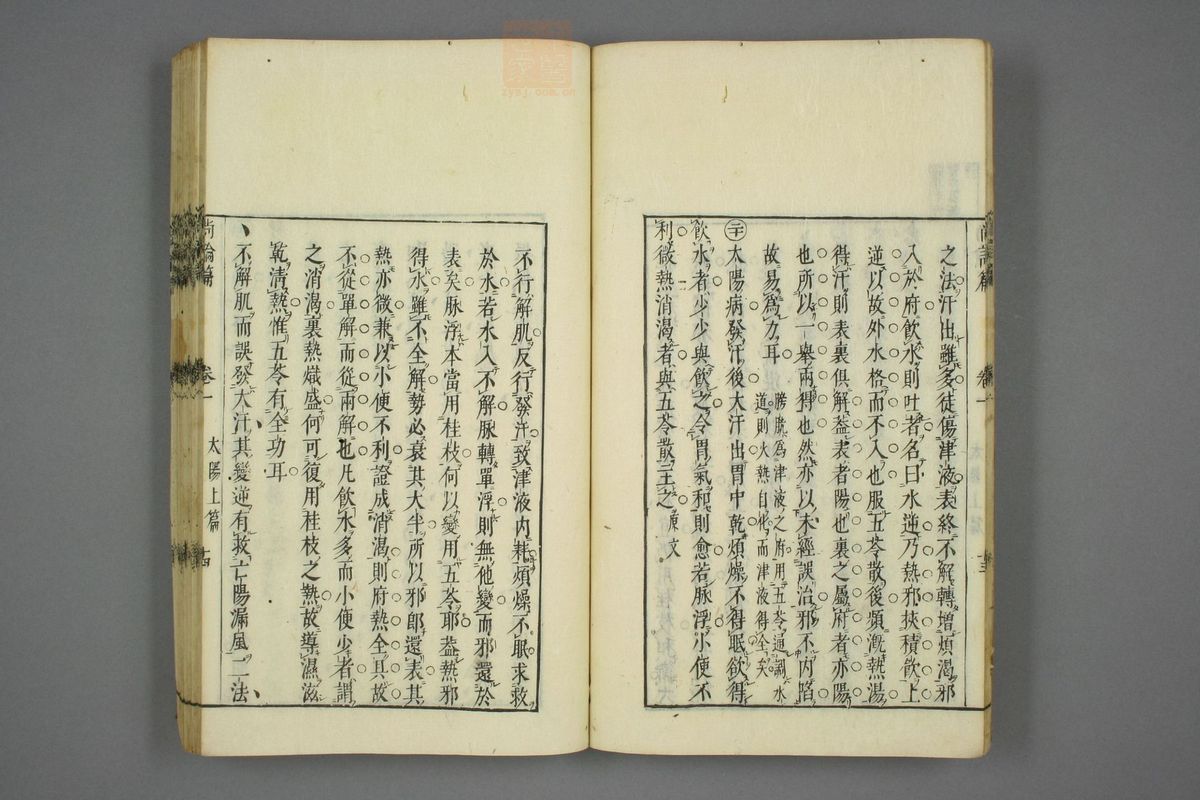 之法汗出雖多徒傷津液表終不解轉增煩渴邪
入於府飲水則吐者名曰水逆乃熱邪挾積飲上
逆以故外水格而不入也服五苓散後頻漑熱湯
得汗則表裏俱解葢表者陽也裏之屬府者亦陽
也所以一舉兩得也然亦以未經誤治邪不內陷
故易爲力耳
膀胱爲津液之府用五苓通調水
道則火熱自化而津液得全矣
二十
太陽病發汗後大汗出胃中乾煩燥不得眠欲得
飮水者少少與飮之令胃氣和則愈若脉浮小便不
利微熱消渴者與五苓散主之
原文
尚論篇
卷一
太陽上篇
十三
不行解肌反行發汗致津液內耗煩燥不眠求救
於水若水入不解脉轉單浮則無他變而邪還於
表矣脉浮本當用桂枝何以變用五苓耶葢熱邪
得水雖不全解勢必衰其大半所以邪郎還表其
熱亦微兼以小便不利證成消渴則府熱全具故
不從單解而從兩解也凡飮水多而小便少者謂
之消渴裏熱熾盛何可復用桂枝之熱故導濕滋
乾清熱惟五苓有全功耳
不解肌而誤發大汗其變逆有救亡陽漏風二法
尚論篇
卷一
太陽上篇
十四
zysj.com.cn